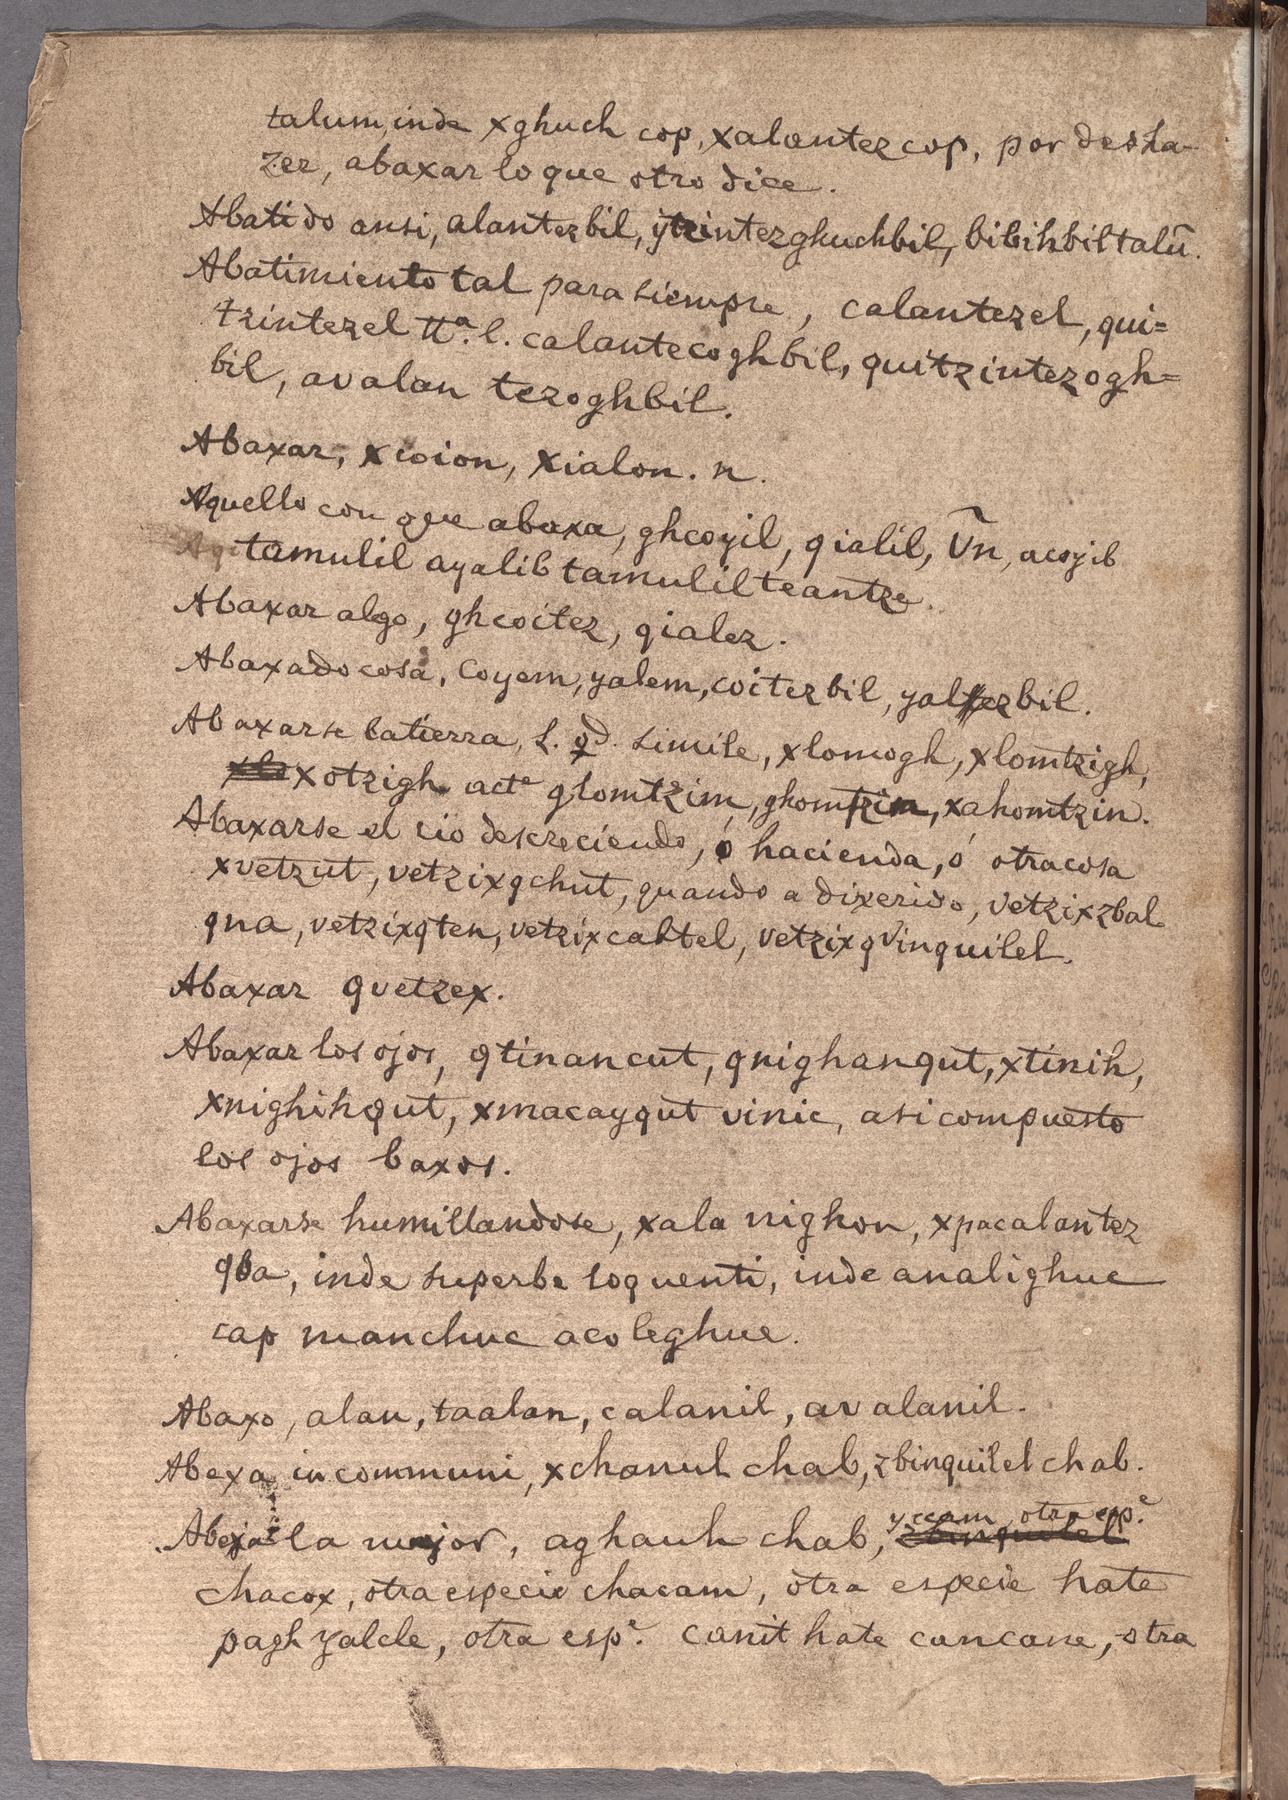 talum, inde xghuch cop, xalantezcop, por desha-
zer, abaxar lo que otro dice.
Abatido ansi, alantezbil, ytzintezghuchbil, bibihbiltalũ.
Abatimiento tal para siempre, calantezel, qui=
tzintezel ttª. l. calantecoghbil, quitzintezogh=
bil, avalan tezoghbil.
Abaxar, xcoion, xialon. n.
Aquello con que abaxa, ghcoyil, qialil, Vn, acoyib
tamulil ayalib tamulilteantze.
Abaxar algo, ghcoitez, qialez.
Abaxado cosa, coyem, yalem, coitezbil, yaltezbil.
Abaxarse latierra, l. qd. simile, xlomogh, xlomtzigh,
xotzigh actᵉ qlomtzim, ghomtzin, xahomtzin.
Abaxarse el rio descreciendo, ó hacienda, ó otracosa
xvetzut, vetzixqchut, quando a dixerido, vetzixzbal
qna, vetzixqten, vetzixcahtel, vetzixqvinquilel.
Abaxar qvetzex.
Abaxar los ojos, qtinancut, qnighanqut, xtinih,
xnighihqut, xmacayqut vinic, asi compuesto
los ojos baxos.
Abaxarse humillandose, xala nighon, xpacalantez
qba, inde superbe loquenti, inde analighuc
cap manchuc acoleghuc.
Abaxo, alan, taalan, calanil, avalanil.
Abexa in communi, xchanul chab, zbinquilel chab.
Abeja la mejor, aghauh chab, yzcam, otra espᵉ.
chacox, otra especie chacam, otra especie hate
pagh yalcle, otra espᵉ. canit hate cancane, otra